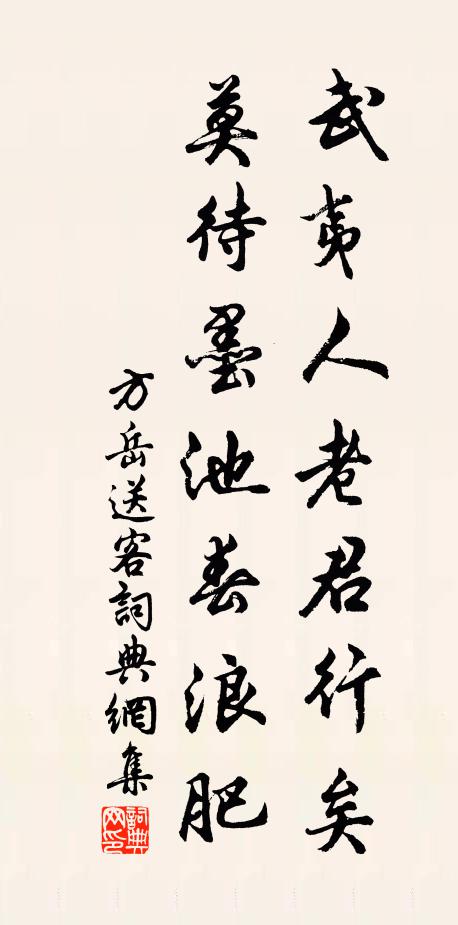 武夷人老君行矣
莫待墨池春浪肥
方岳送客詞典網集
詞典網印